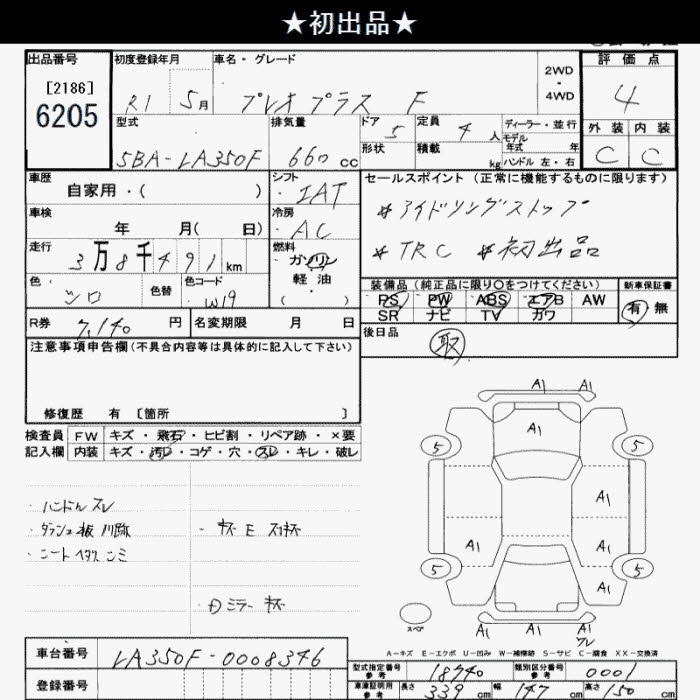 ★初出品★
出品番号 初度登録年月 車名・グレード 評価点
[2186]
6205
R1 5月 プレオプラス F
2WD
・
4WD
4
型式 排気量 ドア 5 定員 4人 ディーラー・並行
モデル
年式 年
外装 内装
SBA-LA350F 660cc 形状 積載 kg ハンドル 左・右
C C
車歴 シフト セールスポイント (正常に機能するものに限ります)
自家用・( ) IAT
*アイドリングストップ
車検 冷房
年 月( 日) AC
*TRC *初出品
走行 燃料
3万8千491km ガソリン
軽油
( )
装備品(純正品に限り○をつけてください) 新車保証書
色 色替 色コード
シロ W19
PS PW ABS エアB AW
SR ナビ TV カワ
有 無
R券 7,140円 名変期限 月 日
後日品
取
注意事項申告欄(不具合内容等は具体的に記入して下さい)
修復歴 有 [箇所 ]
検査員 FW キズ・飛石・ヒビ割・リペア跡・×要
記入欄 内装 キズ・汚レ・コゲ・穴・スレ・キレ・破レ
・ハンドル スレ
・ダッシュ板
A1 A1
A1
5 5
A1
A1 A1
5 5
A1
A1 A1 A1
スペア
A-キズ E-エクボ U-凹み W-補修跡 S-サビ C-腐食 XX-交換済
車台番号 LA350F-0008346
登録番号
型式指定番号 参考 18740 類別区分番号 参考 0001
車庫証明用 参考 長さ 339cm 幅 147cm 高さ 150cm